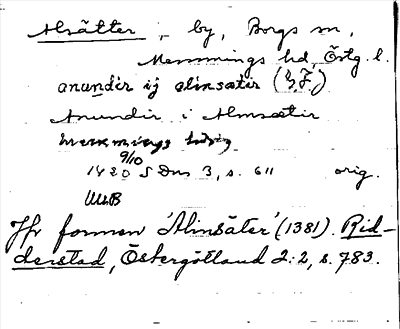 Alsätter, by, Borgs sn,
Memmings hd, Östg. l.
anundir ij alinsætir (G.F.)
Anundir i Almsætir
9/10
1420 SDns 3, s. 611 orig.
Jfr formen 'Alinsäter' (1381). Rid-
derstad, Östergötland 2:2, s. 783.